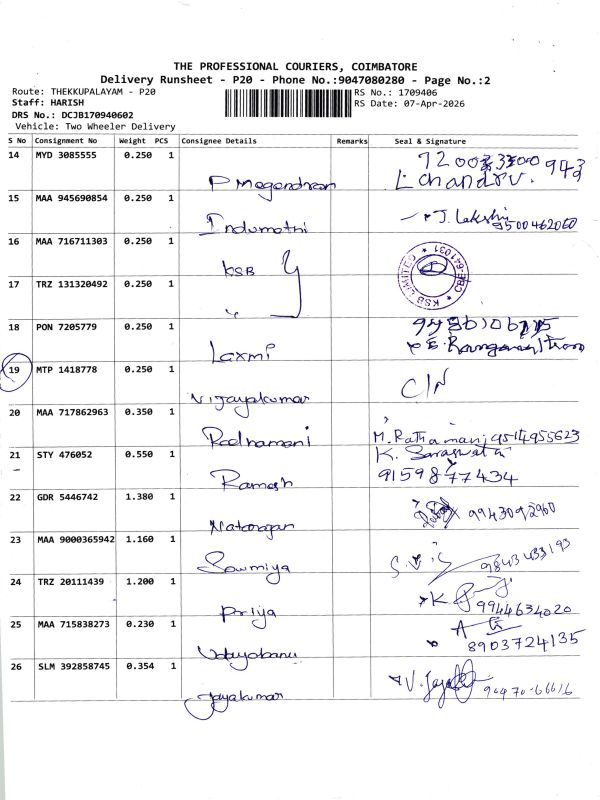 THE PROFESSIONAL COURIERS, COIMBATORE
Delivery Runsheet - P20 - Phone No.:9047080280 - Page No.:2
Route: THEKKUPALAYAM - P20
Staff: HARISH
DRS No.: DCJB170940602
Vehicle: Two Wheeler Delivery
RS No.: 1709406
RS Date: 07-Apr-2026
S No Consignment No Weight PCS Consignee Details Remarks Seal & Signature
14 MYD 3085555 0.250 1
L. Chandru.
15 MAA 945690854 0.250 1 Indumathi
9500462060
16 MAA 716711303 0.250 1 KSB
KSB LIMITED * CBE-641031 *
17 TRZ 131320492 0.250 1
18 PON 7205779 0.250 1 Laxmi
19 MTP 1418778 0.250 1 Vijayakumar
20 MAA 717862963 0.350 1
9514955623
21 STY 476052 0.550 1 Ramesh
K. Saraswathi
9159877434
22 GDR 5446742 1.380 1 Natarajan
9943092960
23 MAA 9000365942 1.160 1 Sowmiya
9843433193
24 TRZ 20111439 1.200 1 Priya
9944634020
25 MAA 715838273 0.230 1
8903724135
26 SLM 392858745 0.354 1 Jayakumar